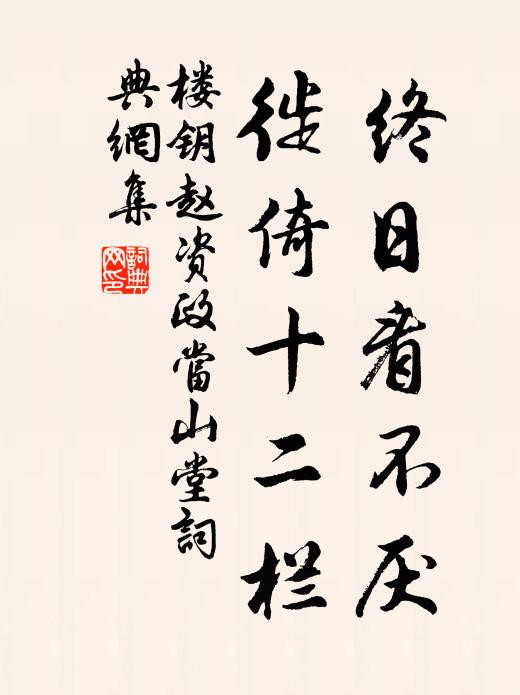 终日看不厌
徙倚十二栏
楼钥赵资政當山堂詞
典網集
詞典网印